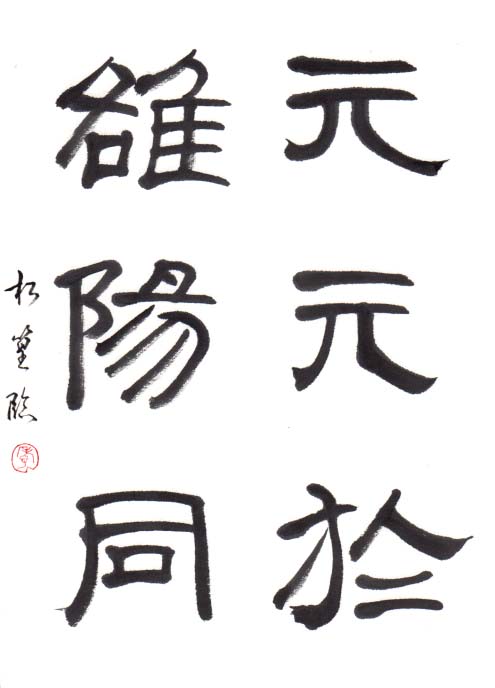 元元於
雒陽同
松篁臨